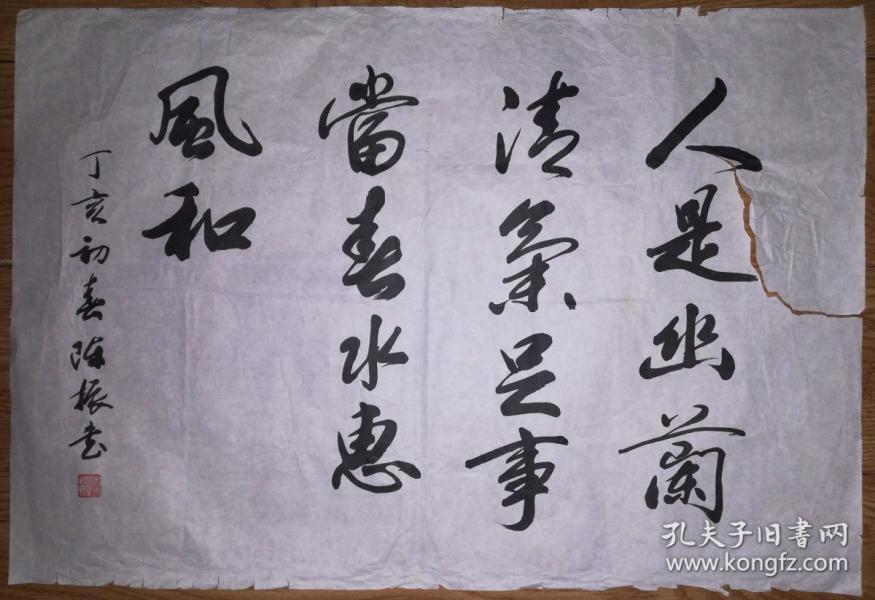 人是幽蘭
清氣足事
當春水惠
風和
丁亥初春陈振书
孔夫子旧書网
www.kongfz.com